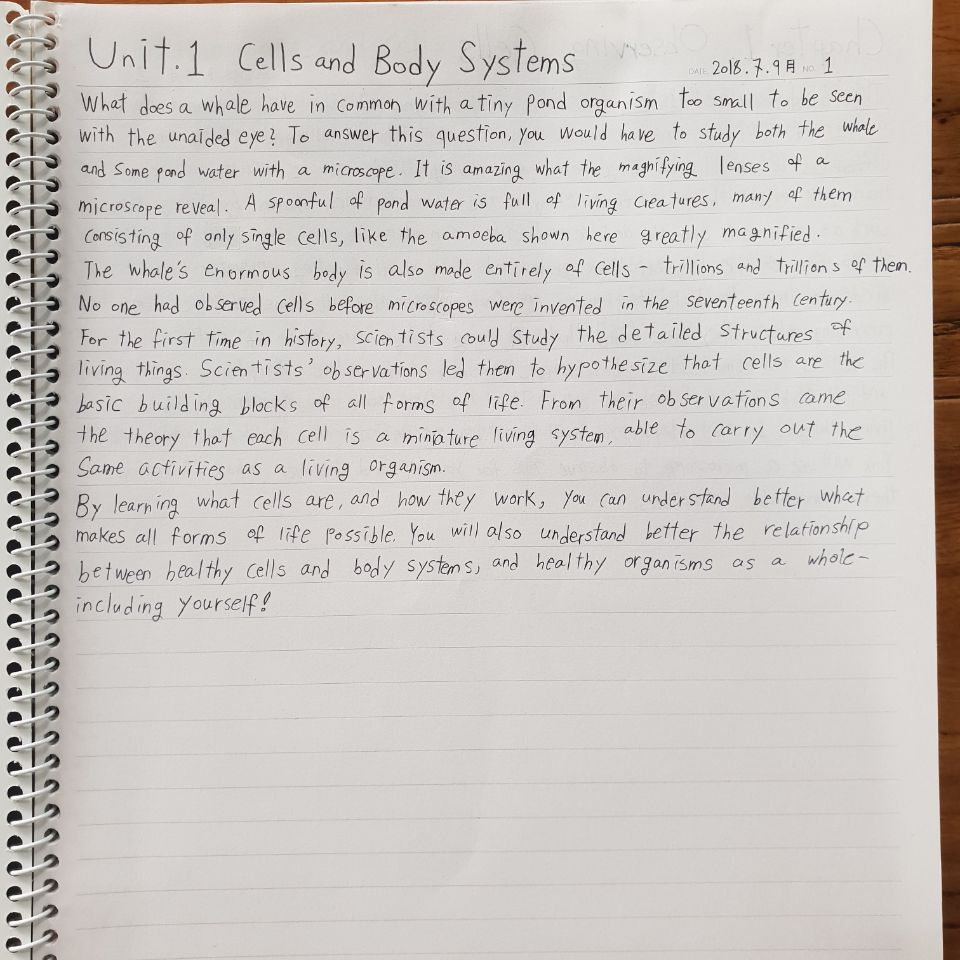 Unit.1 Cells and Body Systems
DATE 2018.7.9月 NO. 1
What does a whale have in common with a tiny pond organism too small to be seen
with the unaided eye? To answer this question, you would have to study both the whale
and some pond water with a microscope. It is amazing what the magnifying lenses of a
microscope reveal. A spoonful of pond water is full of living creatures, many of them
consisting of only single cells, like the amoeba shown here greatly magnified.
The whale's enormous body is also made entirely of cells - trillions and trillions of them.
No one had observed cells before microscopes were invented in the seventeenth century.
For the first time in history, scientists could study the detailed structures of
living things. Scientists' observations led them to hypothesize that cells are the
basic building blocks of all forms of life. From their observations came
the theory that each cell is a miniature living system, able to carry out the
same activities as a living organism.
By learning what cells are, and how they work, you can understand better what
makes all forms of life possible. You will also understand better the relationship
between healthy cells and body systems, and healthy organisms as a whole-
including yourself!